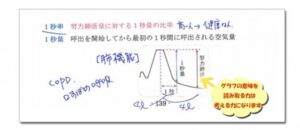 1秒率 努力肺活量に対する1秒量の比率
1秒量 呼出を開始してから最初の1秒間に呼出される空気量
[肺機能]
COPD
1秒量
努力肺活
1秒
4L
139
4L
グラフの意味を
読み取る力は
考える力になります